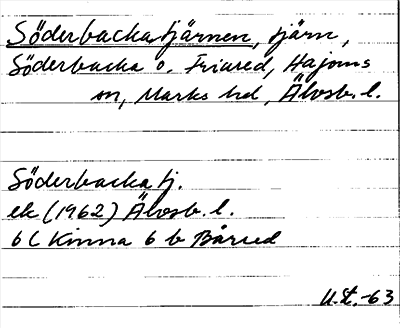 Söderbackatjärnen, tjärn,
Söderbacka o. Friared, Hajoms
sn, Marks hd, Älvsb. l.
Söderbacka tj.
ek (1962) Älvsb. l.
6 C Kinna 6 b Bårred
U.t.-63